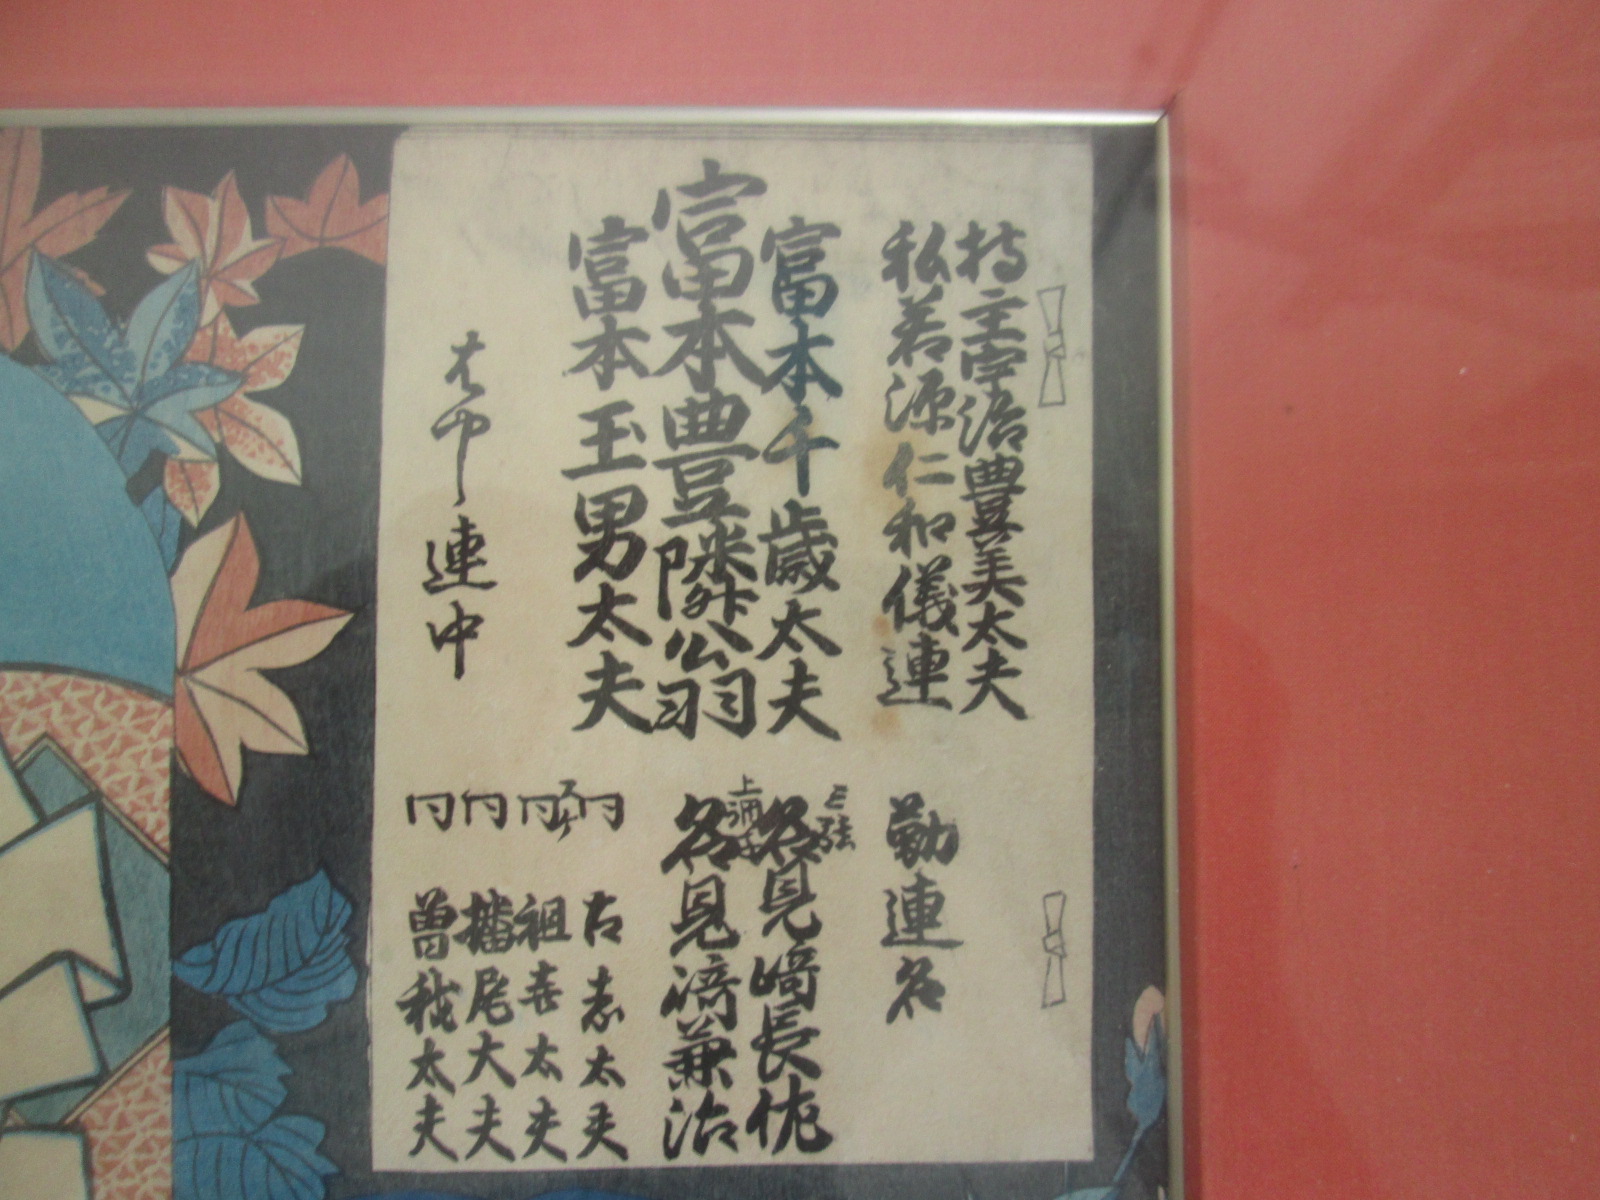 持主宇治豊美太夫
私若源仁和儀連
勤連名
富本千歳太夫
富本豊隣翁
富本玉男太夫
三弦
名見崎長佐
上調子
名見崎兼治
はやし連中
ワキ
同 古志太夫
同 祖喜太夫
同 播尾太夫
同 曽我太夫